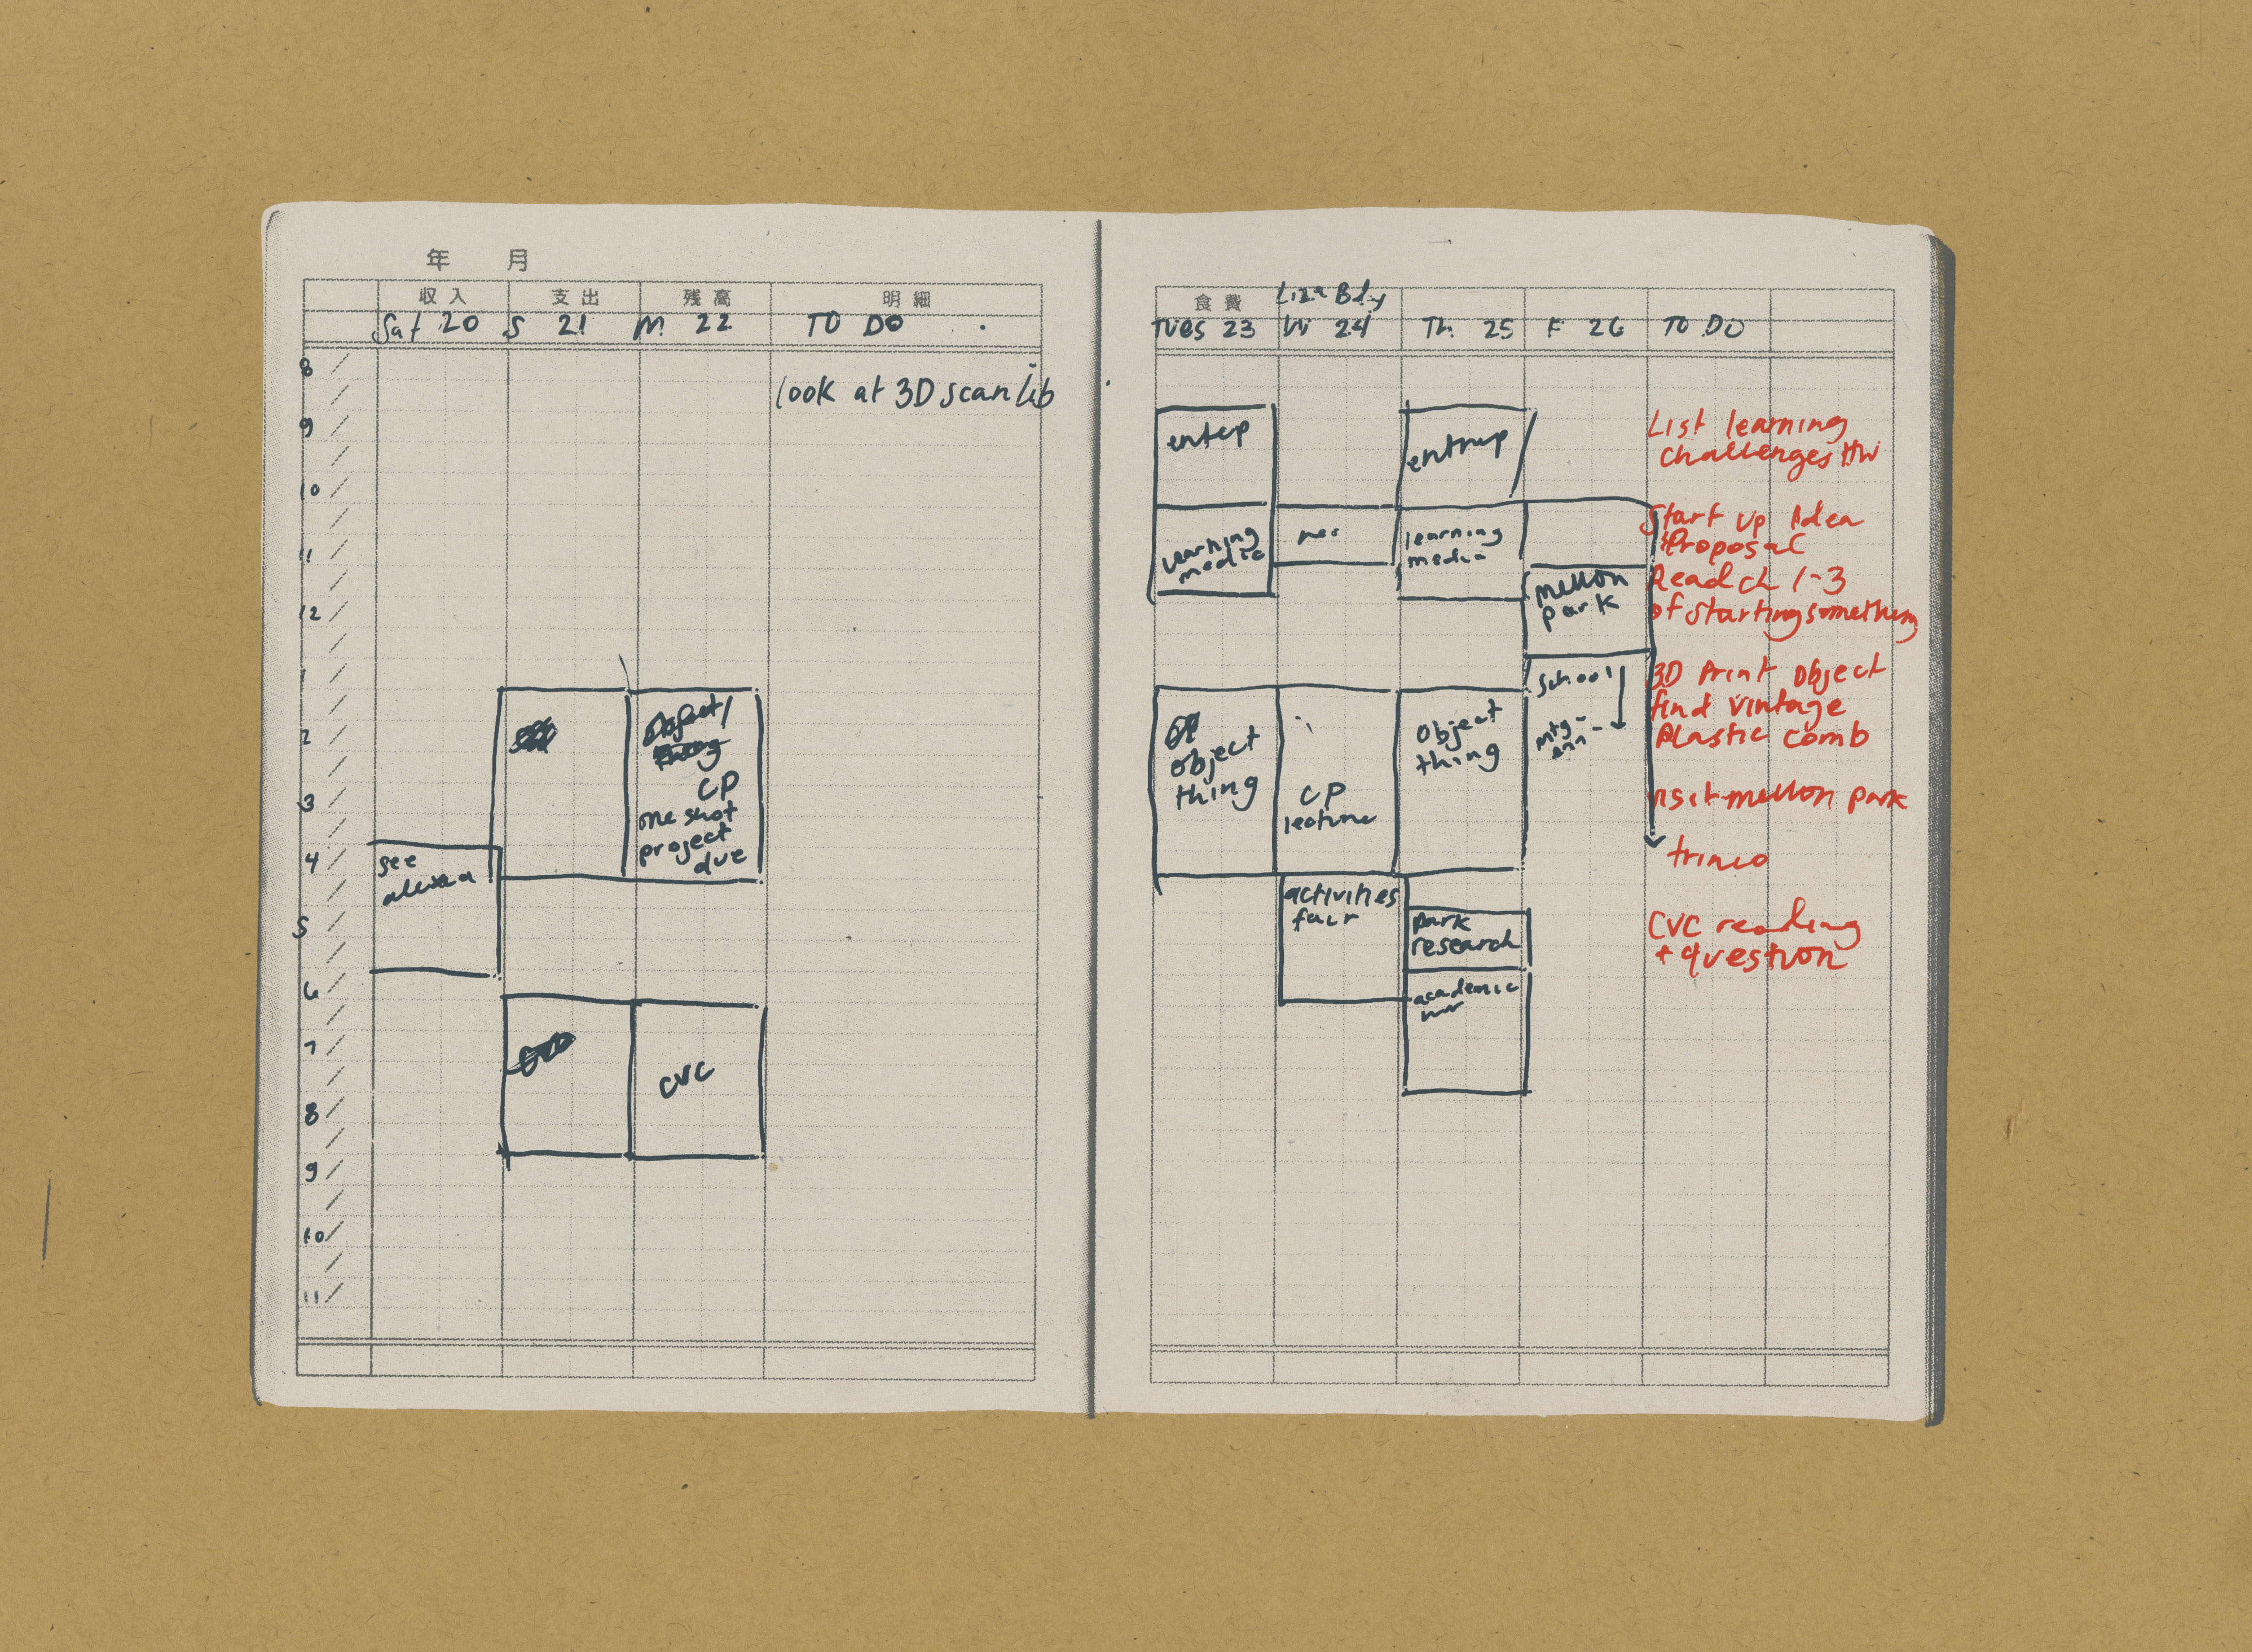 年 月
収入 支出 残高 明細
Sat 20 S 21 M 22 TO DO
look at 3D scan lib
8
9
10
11
12
1
2
3
4
5
6
7
8
9
10
11
see
CP
one shot
project
due
CVC
食費
Liza Bdy
TUES 23 W 24 Th 25 F 26 TO DO
entrp
learning
media
entrup
learning
media
mellon
park
school
mtg
object
thing
CP
lecture
object
thing
activities
fair
park
research
academic
List learning
challenges HW
Start up Idea
Proposal
Read ch 1-3
of starting something
3D Print object
find vintage
Plastic comb
visit mellon park
CVC reading
+ question